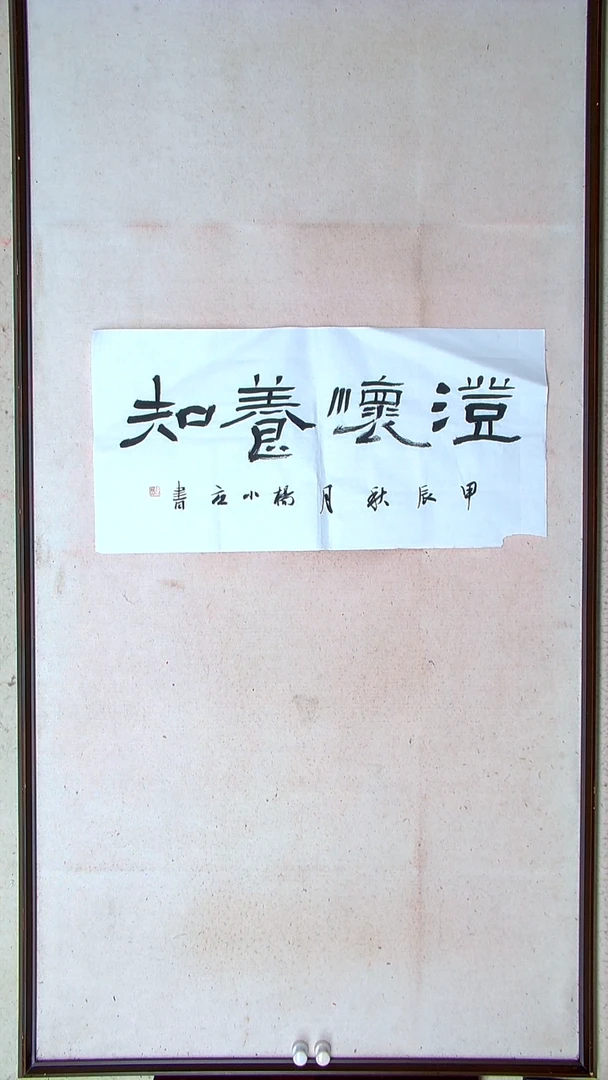 澄懷養知
甲辰秋月楊小書